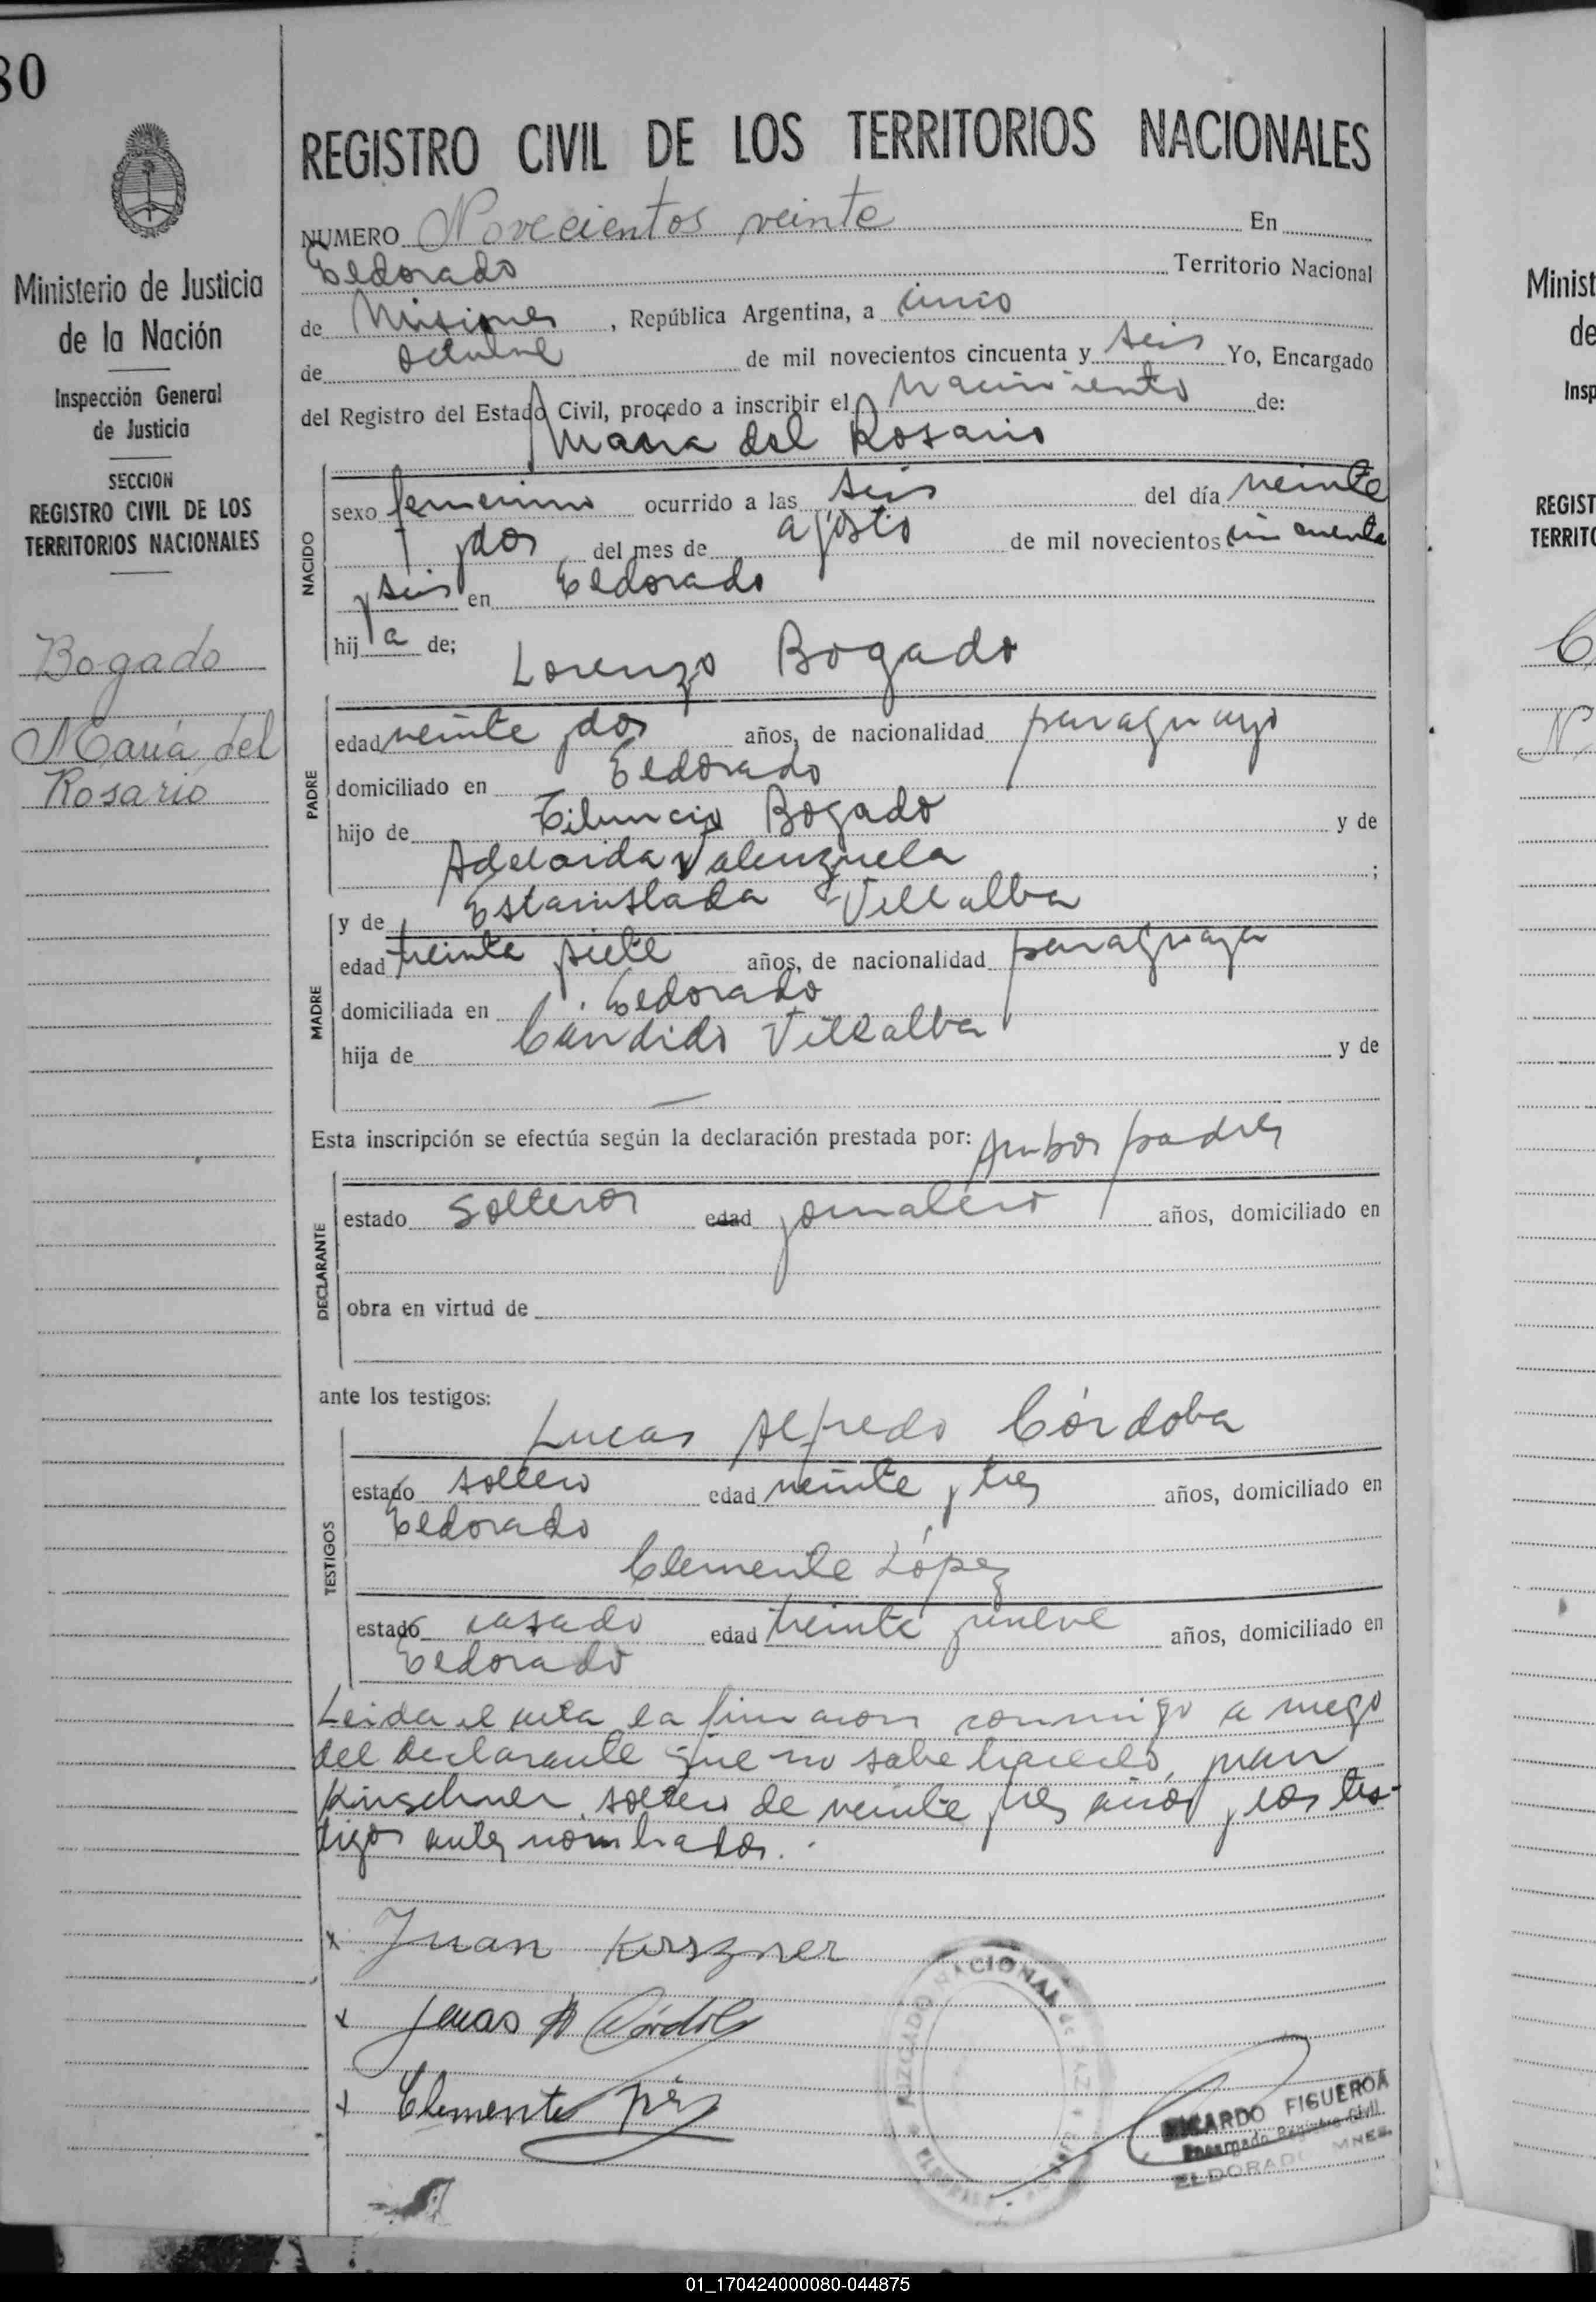 80
Ministerio de Justicia
de la Nación
Inspección General
de Justicia
SECCION
REGISTRO CIVIL DE LOS
TERRITORIOS NACIONALES
Bogado
María del
Rosario
REGISTRO CIVIL DE LOS TERRITORIOS NACIONALES
NUMERO Novecientos veinte En
Eldorado Territorio Nacional
de Misiones, República Argentina, a cinco
de octubre de mil novecientos cincuenta y seis Yo, Encargado
del Registro del Estado Civil, procedo a inscribir el nacimiento de:
María del Rosario
NACIDO
sexo femenino ocurrido a las seis del día veinte
y dos del mes de agosto de mil novecientos cincuenta
y seis en Eldorado
hija de;
Lorenzo Bogado
PADRE
edad veinte y dos años, de nacionalidad paraguayo
domiciliado en Eldorado
hijo de Bogado y de
Adelaida Valenzuela ;
y de Estanislada Villalba
MADRE
edad treinta y siete años, de nacionalidad paraguaya
domiciliada en Eldorado
hija de Cándido Villalba y de
—
Esta inscripción se efectúa según la declaración prestada por: Ambos padres
DECLARANTE
estado solteros edad jornalero años, domiciliado en
obra en virtud de
ante los testigos:
Lucas Alfredo Córdoba
TESTIGOS
estado soltero edad veinte y tres años, domiciliado en
Eldorado
Clemente López
estado casado edad treinta y nueve años, domiciliado en
Eldorado
Leida el acta la firmaron conmigo a ruego
del declarante que no sabe hacerlo, Juan
Kirschner, soltero de veinte y tres años y los tes-
tigos antes nombrados.
x Juan Kirszner
x Lucas A Córdoba
x Clemente López
JUZGADO NACIONAL de PAZ
ELDORADO
RICARDO FIGUEROA
Encargado Registro Civil
ELDORADO MNES.
Minist
de
Insp
REGIST
TERRITO
01_170424000080-044875